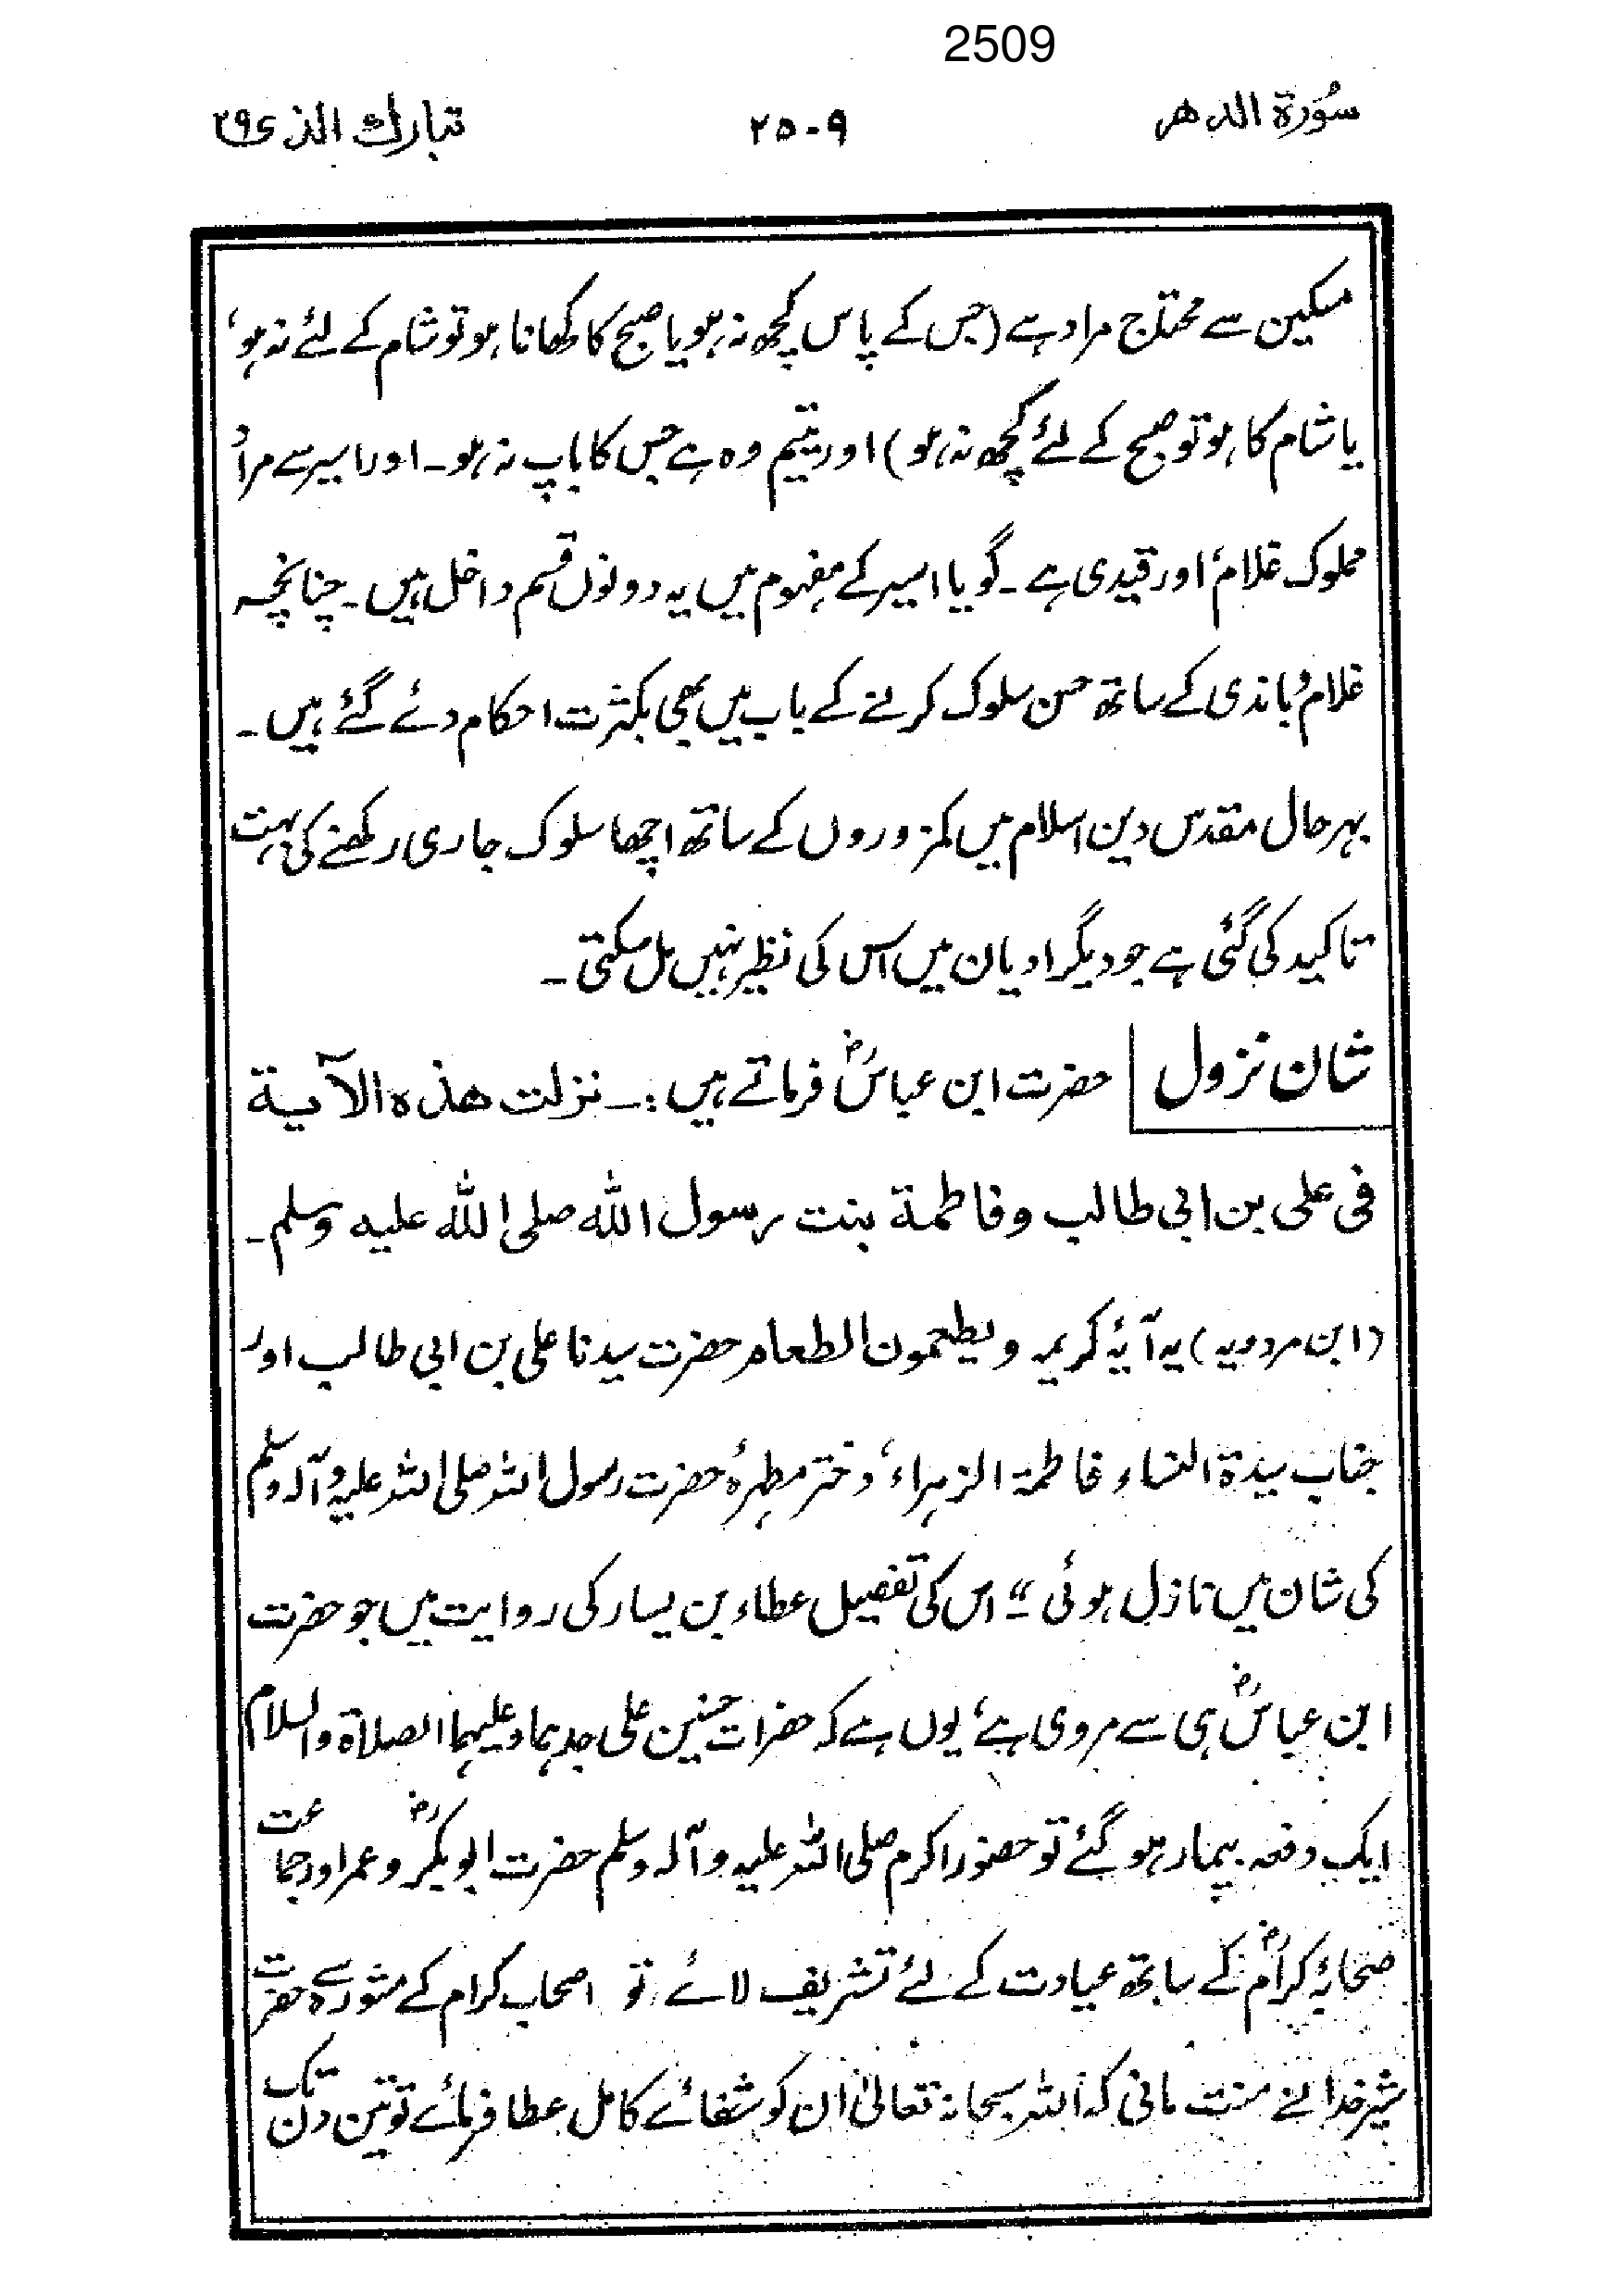 2509
سُورۃ الدھر ۲۵۰۹ تبارك الذی ۲۹
مسکین سے محتاج مراد ہے (جس کے پاس کچھ نہ ہو یا صبح کا کھانا ہو تو شام کے لئے نہ ہو،
یا شام کا ہو تو صبح کے لئے کچھ نہ ہو) اور یتیم وہ ہے جس کا باپ نہ ہو۔ اور اسیر سے مراد
مملوک غلام، اور قیدی ہے۔ گویا اسیر کے مفہوم میں یہ دونوں قسم داخل ہیں۔ چنانچہ
غلام و باندی کے ساتھ حسن سلوک کرنے کے باب میں بھی بکثرت احکام دئے گئے ہیں۔
بہر حال مقدس دین اسلام میں کمزوروں کے ساتھ اچھا سلوک جاری رکھنے کی بہت
تاکید کی گئی ہے جو دیگر ادیان میں اس کی نظیر نہیں مل سکتی۔
شان نزول حضرت ابن عباسؓ فرماتے ہیں:۔ نزلت ھذہ الآیة
فی علی بن ابی طالب وفاطمة بنت رسول اللہ صلی اللہ علیه وسلم۔
(ابن مردویہ) یہ آیۂ کریمہ ویطعمون الطعام حضرت سیدنا علی بن ابی طالب اور
جناب سیدۃ النساء فاطمۃ الزہراء، دختر مطہرۂ حضرت رسول اللہ صلی اللہ علیہ وآلہ وسلم
کی شان میں نازل ہوئی“۔ اس کی تفصیل عطاء بن یسار کی روایت میں جو حضرت
ابن عباسؓ ہی سے مروی ہے، یوں ہے کہ حضرات حسنین علی جدہما وعلیہما الصلاۃ والسلام
ایک دفعہ بیمار ہو گئے تو حضور اکرم صلی اللہ علیہ وآلہ وسلم حضرت ابوبکرؓ و عمر اور جماعت
صحابۂ کرامؓ کے ساتھ عیادت کے لئے تشریف لائے، تو اصحاب کرام کے مشورہ سے حضرت
شیر خدا نے منت مانی کہ اللہ سبحانہ تعالیٰ ان کو شفائے کامل عطا فرمائے تو تین دن تک